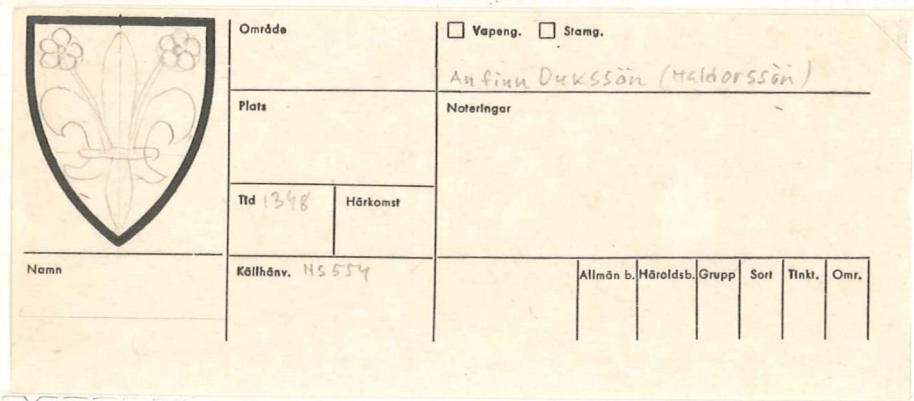 Område
☐ Vapeng. ☐ Stamg.
Anfinn Dukssön (Haldorssön)
Plats
Noteringar
Tid 1348
Härkomst
Namn
Källhänv. NS 554
Allmän b. Häroldsb. Grupp Sort Tinkt. Omr.